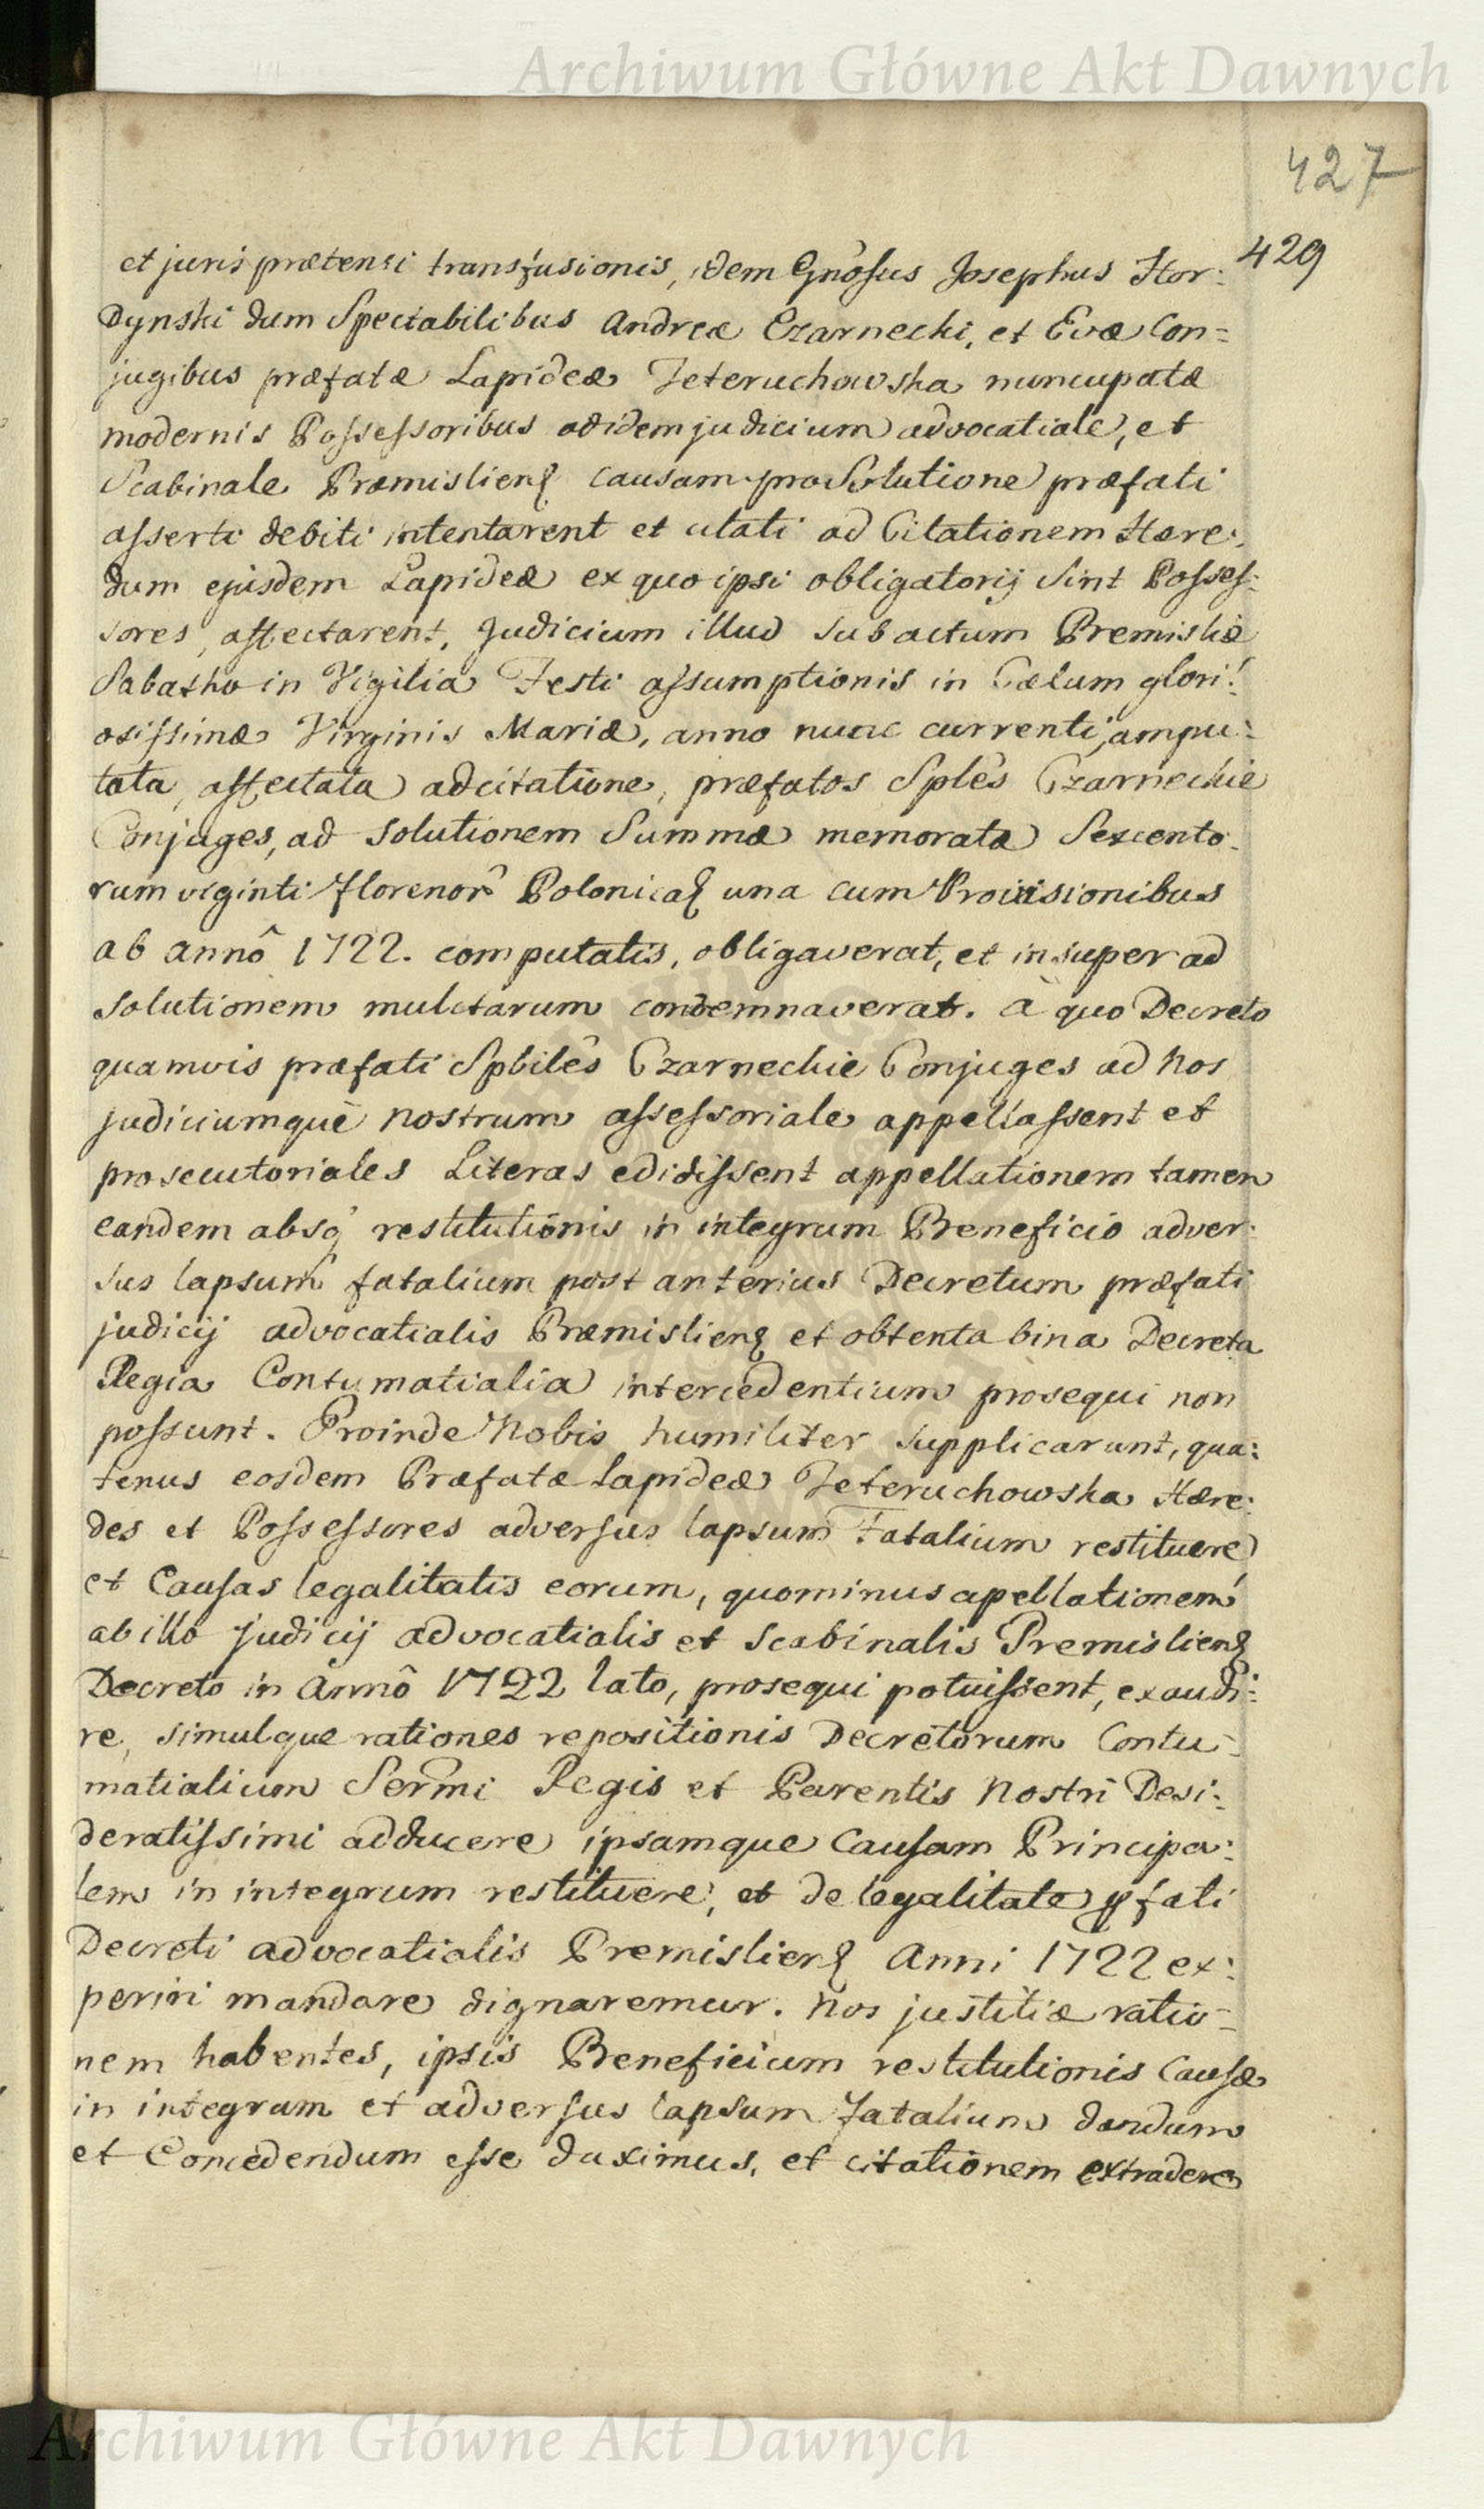 Archiwum Główne Akt Dawnych
427
429
et juris prætensi transfusionis, idem Gnosus Josephus Hor:
Dynski dum Spectabilibus Andreæ Czarnecki, et Evæ Con=
jugibus præfatæ Lapideæ Teteruchowska nuncupatæ
modernis Possessoribus ad idem judicium advocatiale, et
Scabinale Præmislien causam pro Solutione præfati
asserti debiti intentarent et citati ad Citationem Hære:
dum ejusdem Lapideæ ex quo ipsi obligatorij Sint Posses:
sores, affectarent, Judicium illud sub actum Premisliæ
Sabatho in Vigilia Festi assumptionis in Cælum glori:
osissimæ Virginis Mariæ, anno nunc currenti, ampu:
tata, affectata adcitatione, præfatos Splês Czarneckie
Conjuges, ad Solutionem Summæ memoratæ Sexcento:
rum viginti florenor̂ Polonical una cum Provisionibus
ab annô 1722. computatis, obligaverat, et insuper ad
Solutionem mulctarum condemnaverat. à quo Decreto
quamvis præfati Spbilês Czarneckie Conjuges ad Nos
judiciumquè nostrum assessoriale appellassent et
prosecutoriales Literas edidissent appellationem tamen
eandem absq restitutionis in integrum Beneficio adver:
sus lapsum fatalium post anterius Decretum præfati
judicij advocatialis Præmislien et obtenta bina Decreta
Regia Contumatialia intercedentium prosequi non
possunt. Proinde Nobis humiliter supplicarunt, qua:
tenus eosdem Præfatæ Lapideæ Teteruchowska Hære:
des et Possessores adversus lapsum Fatalium restituere
et Causas legalitatis eorum, quominus apellationem
ab illo judicij advocatialis et Scabinalis Premislien
Decreto in Annô 1722 lato, prosequi potuissent, exaudi:
re, simulque rationes repositionis Decretorum Contu-
matialium Sermi Regis et Parentis Nostri Desi:
deratissimi adducere ipsamque Causam Principa:
lem in integrum restituere, et de legalitate pfati
Decreti advocatialis Premislien Anni 1722 ex:
periri mandare dignaremur. Nos justitiæ ratio-
nem habentes, ipsis Beneficium restitutionis Causæ
in integrum et adversus lapsum fatalium dandum
et Concedendum esse duximus, et citationem extradere
Archiwum Główne Akt Dawnych